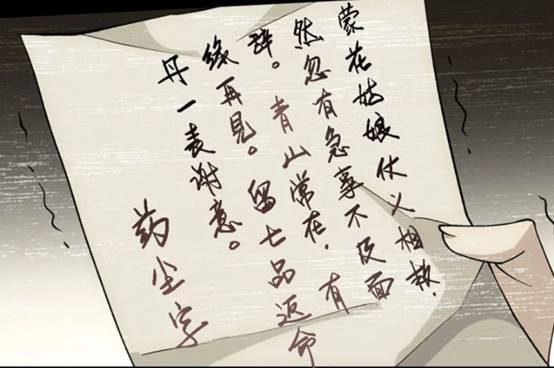 蒙花姑娘仗义相救.
然忽有急事不及面
辞。青山常在,有
缘再见。留七品返命
丹一表谢意。
药尘字